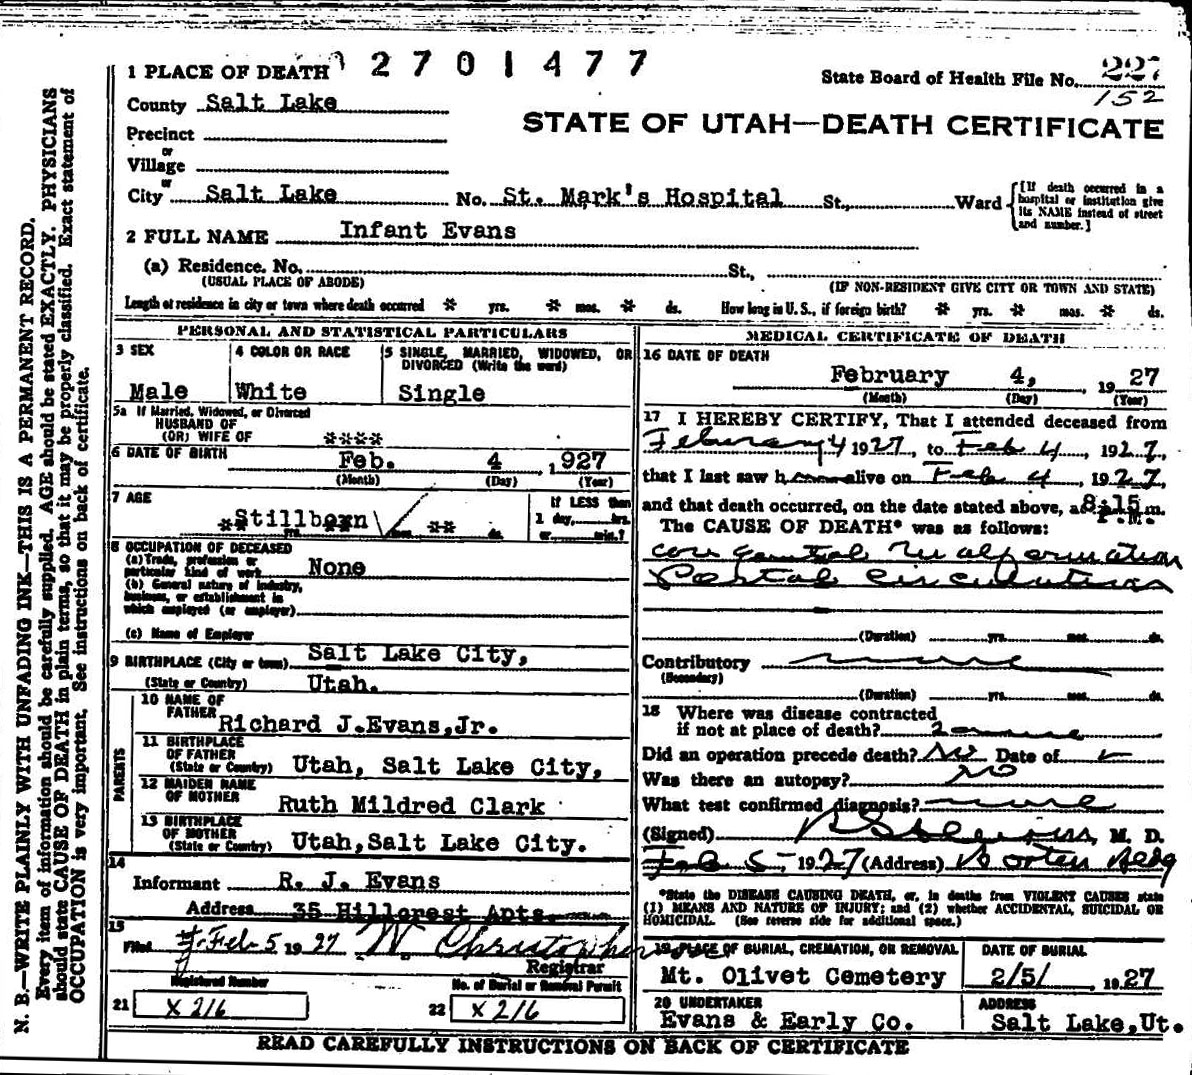 1 PLACE OF DEATH 2701477
State Board of Health File No. 227
152
County Salt Lake
STATE OF UTAH—DEATH CERTIFICATE
Precinct
or
Village
or
City Salt Lake No. St. Mark's Hospital St., Ward
[If death occurred in a
hospital or institution give
its NAME instead of street
and number.]
2 FULL NAME Infant Evans
(a) Residence. No. St.,
(USUAL PLACE OF ABODE) (IF NON-RESIDENT GIVE CITY OR TOWN AND STATE)
Length of residence in city or town where death occurred * yrs. * mos. * ds. How long in U. S., if foreign birth? * yrs. * mos. * ds.
PERSONAL AND STATISTICAL PARTICULARS
3 SEX
Male
4 COLOR OR RACE
White
5 SINGLE, MARRIED, WIDOWED, OR
DIVORCED (Write the word)
Single
5a If Married, Widowed, or Divorced
HUSBAND OF
(OR) WIFE OF ****
6 DATE OF BIRTH Feb. 4 , 1927
(Month) (Day) (Year)
7 AGE
**Stillborn **
yrs. mos. ds.
If LESS than
1 day, hrs.
or min.?
8 OCCUPATION OF DECEASED
(a) Trade, profession or
particular kind of work None
(b) General nature of industry,
business, or establishment in
which employed (or employer)
(c) Name of Employer
9 BIRTHPLACE (City or town) Salt Lake City,
(State or Country) Utah.
PARENTS
10 NAME OF
FATHER Richard J.Evans,Jr.
11 BIRTHPLACE
OF FATHER
(State or Country) Utah, Salt Lake City,
12 MAIDEN NAME
OF MOTHER Ruth Mildred Clark
13 BIRTHPLACE
OF MOTHER
(State or Country) Utah,Salt Lake City.
14
Informant R. J. Evans
Address 35 Hillcrest Apts.
15
Filed Feb 5 1927 W Christopherson
Registrar
Registered Number
No. of Burial or Removal Permit
21 X 216
22 X 216
MEDICAL CERTIFICATE OF DEATH
16 DATE OF DEATH
February 4, 1927
(Month) (Day) (Year)
17 I HEREBY CERTIFY, That I attended deceased from
February 4 1927, to Feb 4, 1927,
that I last saw h alive on Feb 4, 1927,
and that death occurred, on the date stated above, at 8:15 P.M. m.
The CAUSE OF DEATH* was as follows:
congenital malformation
circulation
(Duration) yrs. mos. ds.
Contributory none
(Secondary)
(Duration) yrs. mos. ds.
18 Where was disease contracted
if not at place of death?
Did an operation precede death? No Date of
Was there an autopsy? No
What test confirmed diagnosis? none
(Signed) M. D.
Feb 5- 1927 (Address) Boston Bldg
*State the DISEASE CAUSING DEATH, or, in deaths from VIOLENT CAUSES state
(1) MEANS AND NATURE OF INJURY; and (2) whether ACCIDENTAL, SUICIDAL OR
HOMICIDAL. (See reverse side for additional space.)
19 PLACE OF BURIAL, CREMATION, OR REMOVAL
Mt. Olivet Cemetery
DATE OF BURIAL
2/5/, 1927
20 UNDERTAKER
Evans & Early Co.
ADDRESS
Salt Lake,Ut.
READ CAREFULLY INSTRUCTIONS ON BACK OF CERTIFICATE
N. B.—WRITE PLAINLY WITH UNFADING INK—THIS IS A PERMANENT RECORD.
Every item of information should be carefully supplied. AGE should be stated EXACTLY. PHYSICIANS
should state CAUSE OF DEATH in plain terms, so that it may be properly classified. Exact statement of
OCCUPATION is very important. See instructions on back of certificate.